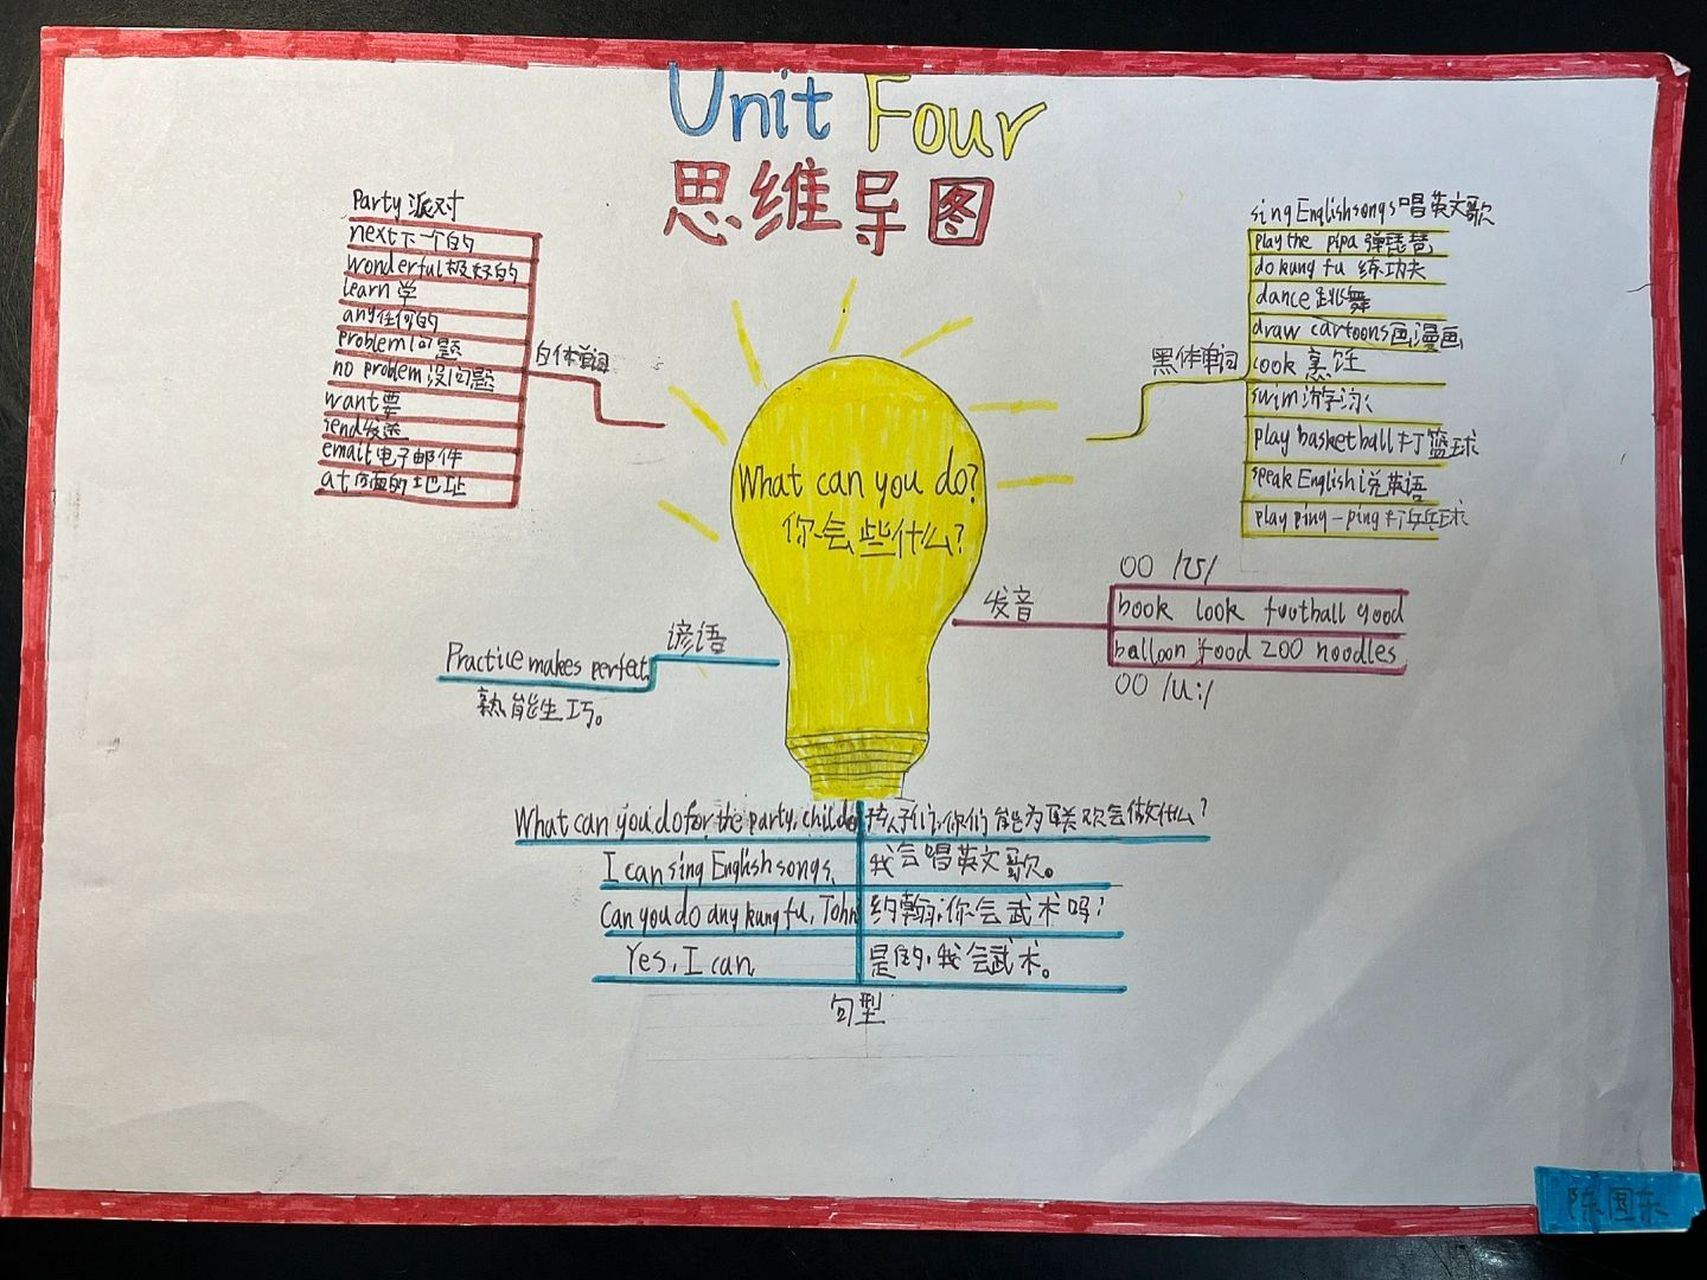 Unit Four
思维导图
Party派对
next下一个的
wonderful极好的
learn 学
any任何的
problem问题
no problem没问题
want要
send发送
email电子邮件
at 的地址
白体单词
sing English songs唱英文歌
play the pipa 弹琵琶
do kung fu 练功夫
dance 跳舞
draw cartoons画漫画
cook 烹饪
swim 游泳
play basketball打篮球
speak English说英语
play ping-ping打乒乓球
黑体单词
What can you do?
你会些什么?
发音
oo /ʊ/
book look football good
balloon food zoo noodles
oo /u:/
谚语
Practice makes perfect
熟能生巧。
What can you do for the party, 孩子们,你们能为联欢会做什么?
I can sing English songs. 我会唱英文歌。
Can you do any kung fu, John 约翰,你会武术吗?
Yes, I can 是的,我会武术。
句型
陈国东